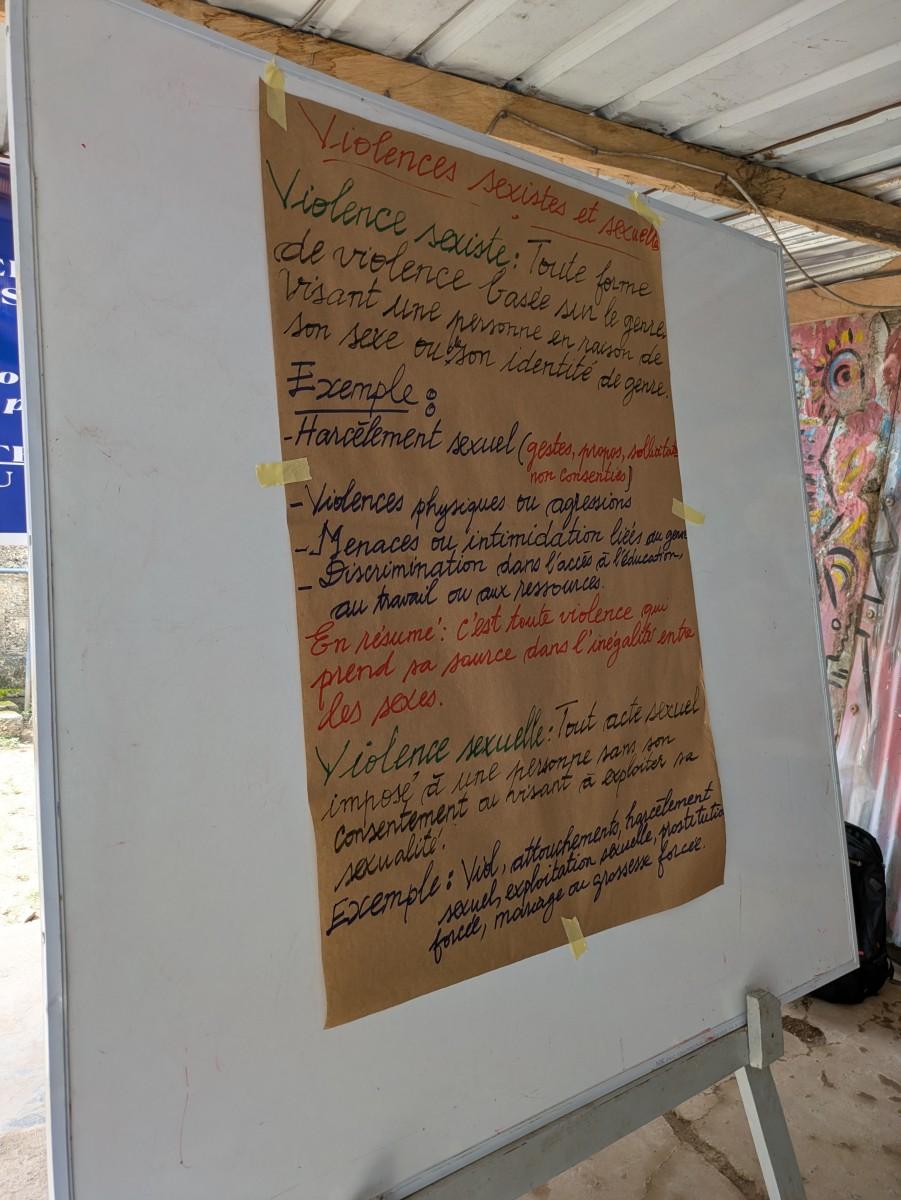 Violences sexistes et sexuelles
Violence sexiste : Toute forme
de violence basée sur le genre
Visant une personne en raison de
son sexe ou son identité de genre.
Exemple :
- Harcèlement sexuel (gestes, propos, sollicitat
non consenties)
- Violences physiques ou agressions
- Menaces ou intimidation liées au genre
- Discrimination dans l'accès à l'éducation,
au travail ou aux ressources.
En résumé : c'est toute violence qui
prend sa source dans l'inégalité entre
les sexes.
Violence sexuelle : Tout acte sexuel
imposé à une personne sans son
consentement ou visant à exploiter sa
sexualité.
Exemple : Viol, attouchements, harcèlement
sexuel, exploitation sexuelle, prostitution
forcée, mariage ou grossesse forcée.